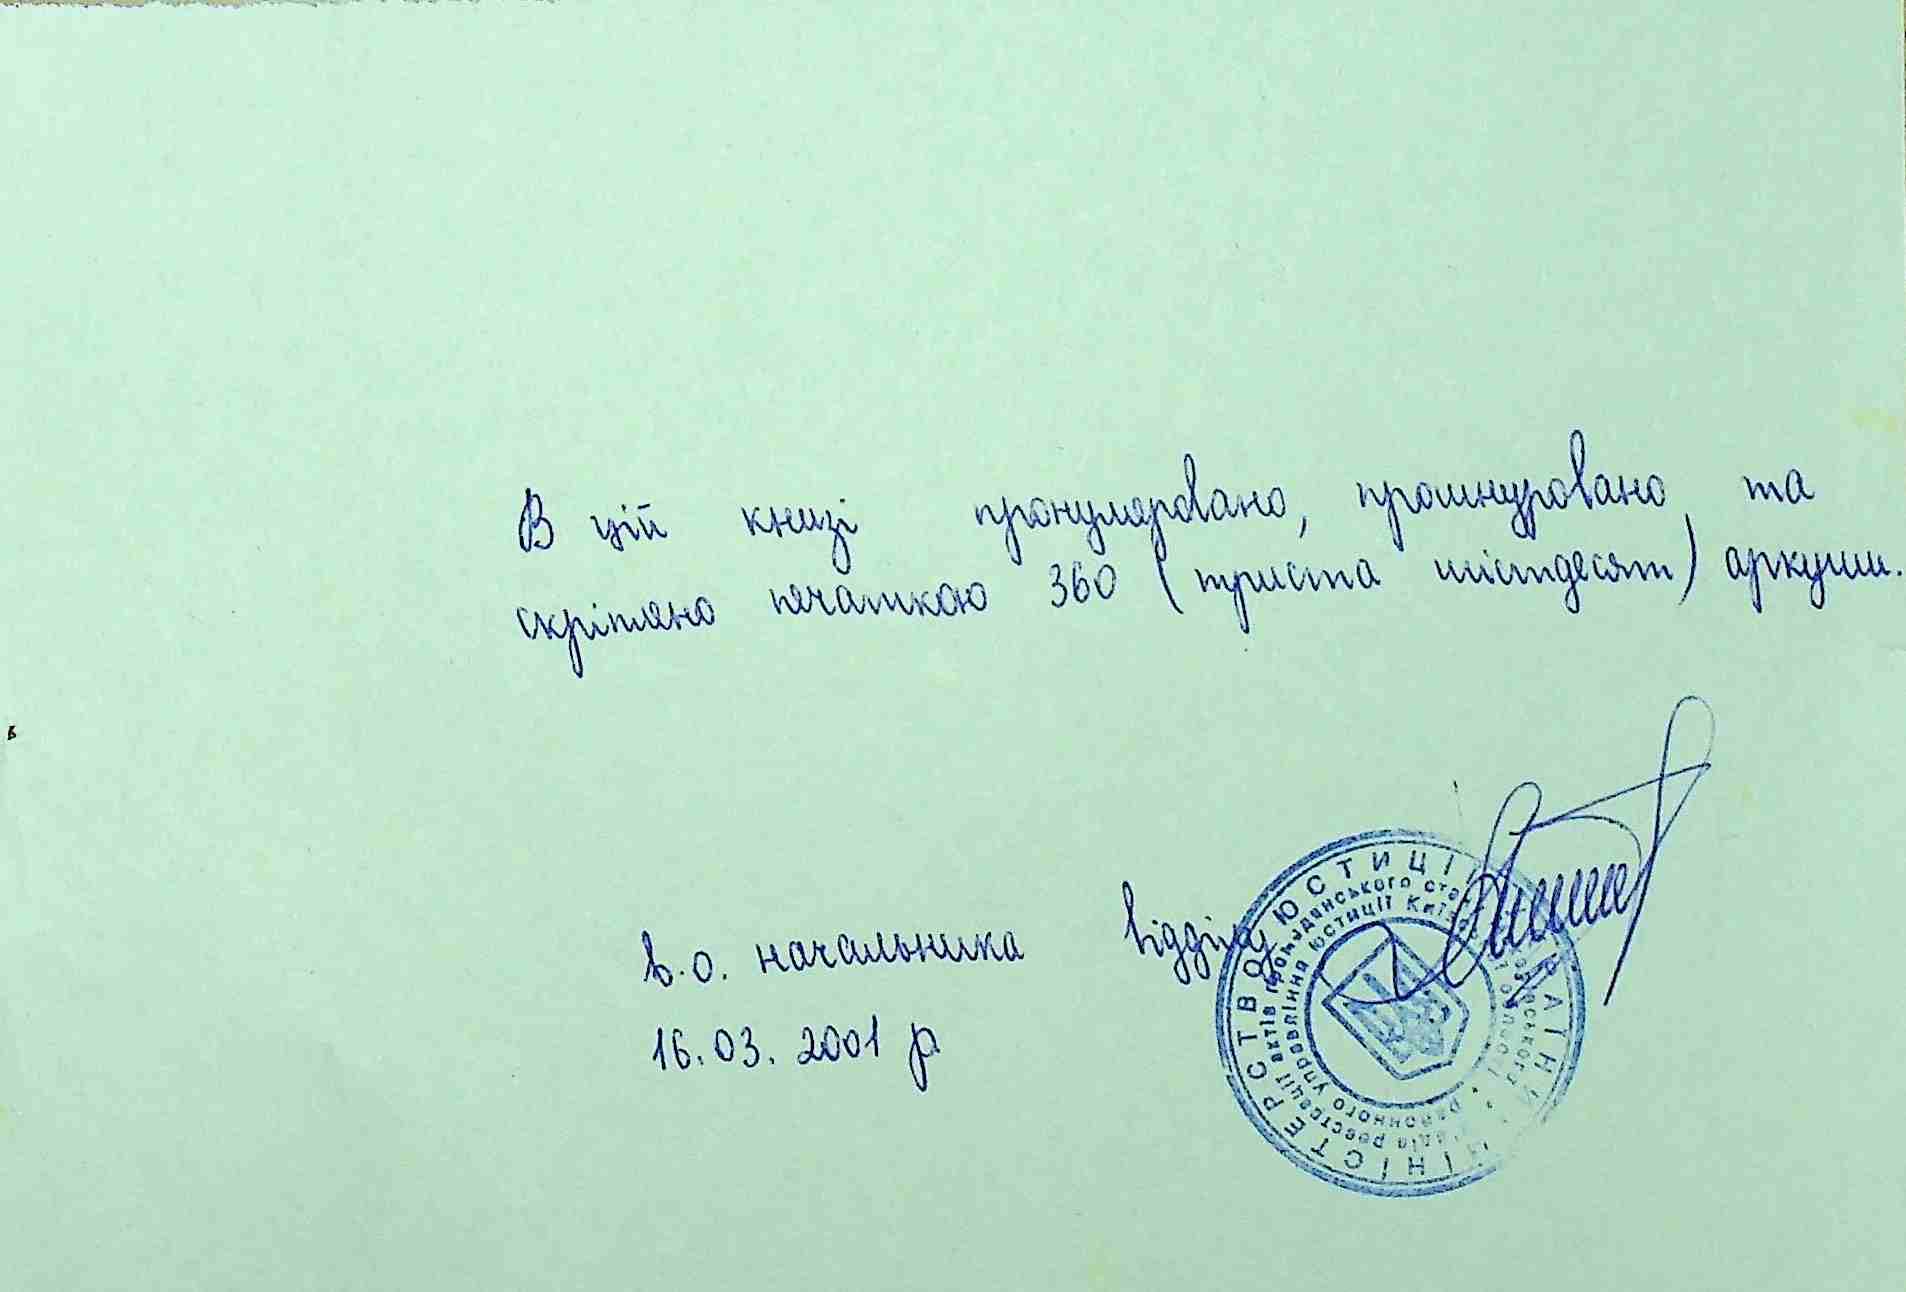 В цій книзі пронумеровано, прошнуровано та
скріплено печаткою 360 (триста шістдесят) аркуші.
в.о. начальника відділу
16.03.2001 р
МІНІСТЕРСТВО ЮСТИЦІЇ УКРАЇНИ
реєстрації актів громадянського
районного управління юстиції